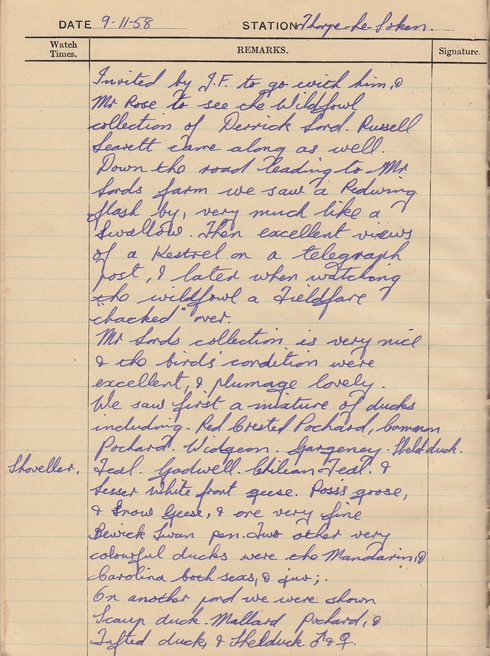 DATE 9-11-58 STATION Thorpe-Le-Soken.
Watch Times. REMARKS. Signature.
Invited by J.F. to go with him, &
Mr Rose to see the Wildfowl
collection of Derrick Lord. Russell
Leavett came along as well.
Down the road leading to Mr
Lords farm we saw a Redwing
flash by, very much like a
Swallow. Then excellent views
of a Kestrel on a telegraph
post, & later when watching
the wildfowl a Fieldfare
"chacked" over.
Mr Lords collection is very nice
& the birds' condition were
excellent, & plumage lovely.
We saw first a mixture of ducks
including. Red Crested Pochard, Common
Pochard. Widgeon. Gargeney. Shelduck.
Shoveller. Teal. Gadwell. Chilian-Teal. &
Lesser White front geese. Ross's goose,
& Snow Geese, & one very fine
Bewick Swan pen. Two other very
colourful ducks were the Mandarin, &
Carolina both sexs, & juv;.
On another pond we were shown
Scaup duck. Mallard Pochard, &
Tufted duck, & Shelduck ♂ & ♀.